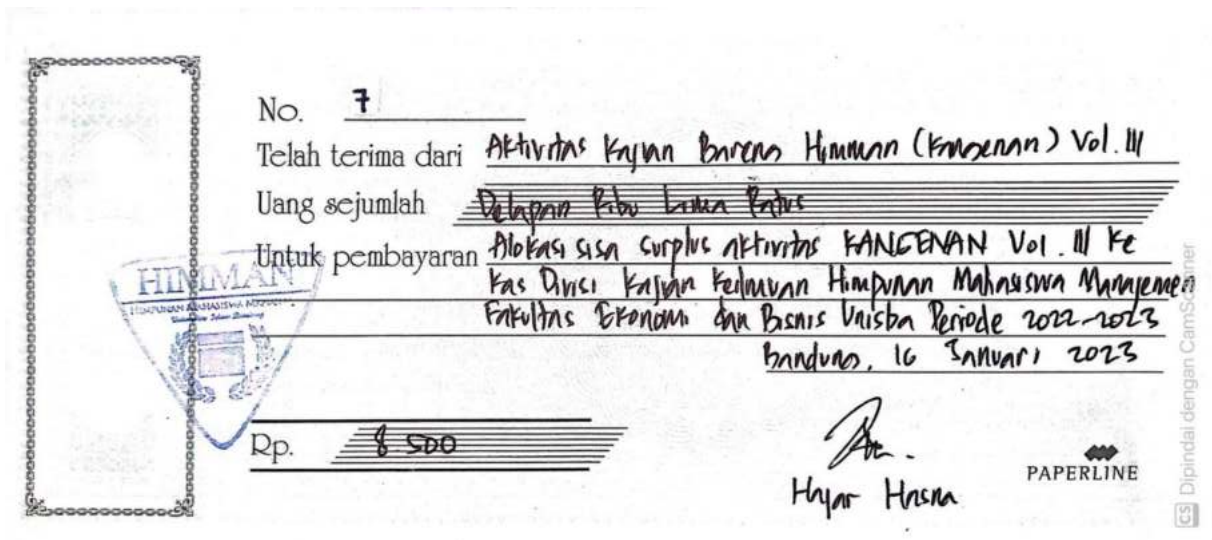 No. 7
Telah terima dari Aktivitas Kajian Bareng Himman (Kangenan) Vol. III
Uang sejumlah Delapan Ribu Lima Ratus
Untuk pembayaran Alokasi sisa surplus aktivitas KANGENAN Vol. III Ke
Kas Divisi Kajian Keilmuan Himpunan Mahasiswa Manajemen
Fakultas Ekonomi dan Bisnis Unisba Periode 2022-2023
Bandung, 16 Januari 2023
HIMMAN
HIMPUNAN MAHASISWA
Rp. 8.500
Hajar Hasna
PAPERLINE
CS Dipindai dengan CamScanner